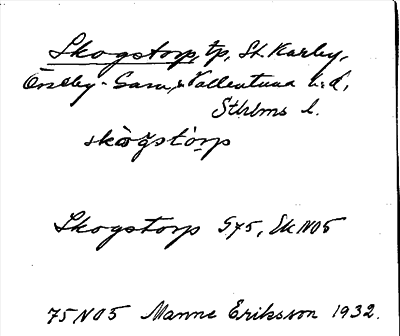 Skogstorp, tp, St. Karby,
Össeby-Garn, Vallentuna h.d,
Sthlms l.
skògstòrp
Skogstorp G75, Ek N05
75 N05 Manne Eriksson 1932.